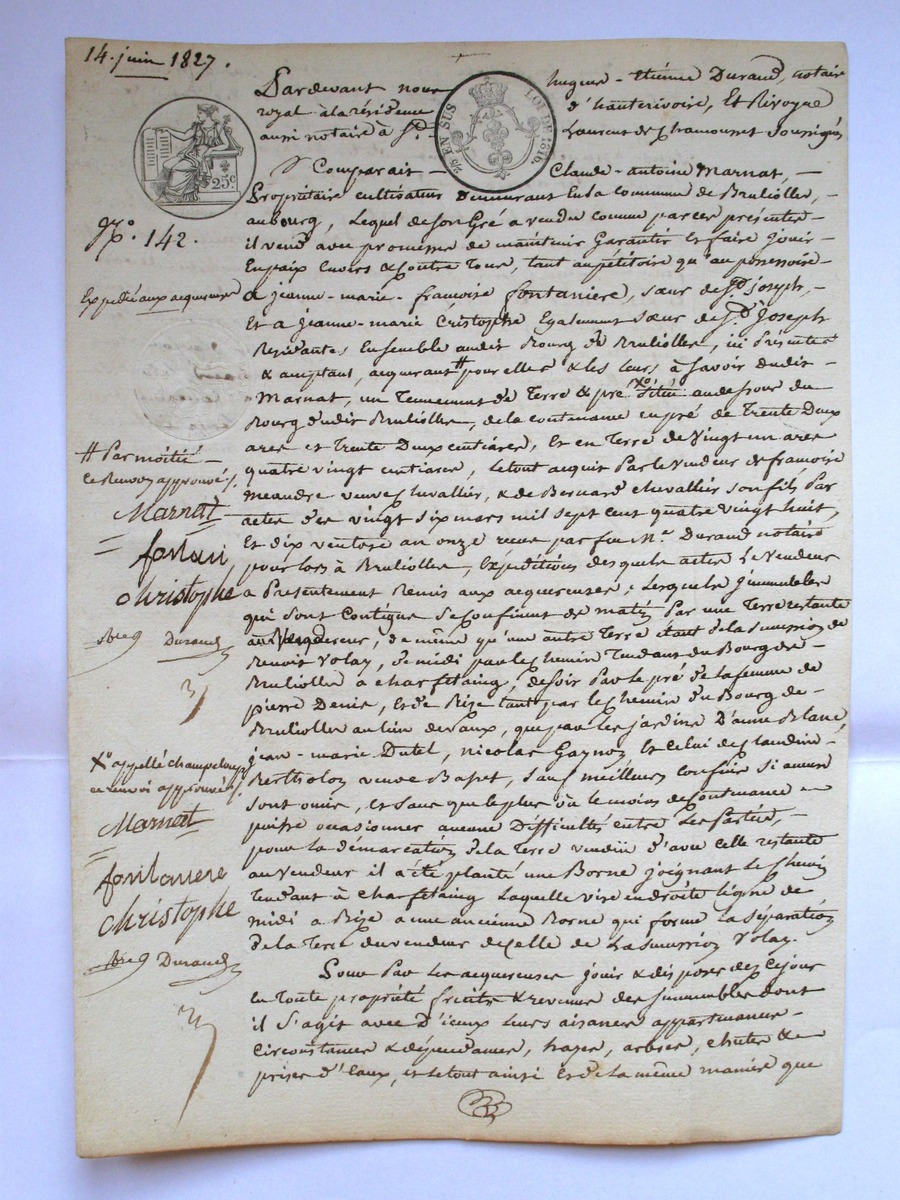 14. juin 1827.
Pardevant nous hugues-étienne Durand, notaire
royal à la résidence d'hauterivoire, Et Rivoyne
aussi notaire à St.- Laurent de Chamousset Soussignés
25c
25 EN SUS LOI DE 1816.
Comparait - Claude-antoine Marnat, -
Propriétaire cultivateur Demeurant En la commune de Brulliolles, -
au bourg, Lequel de son Gré a vendu comme par ces présentes -
il vend avec promesse de maintenir Garantir Et faire jouir -
En paix Envers & Contre Tous, tant au pétitoire qu'au possessoire -
No. 142.
Expedié aux acquereuses
à jeanne-marie-françoise fontaniere, sœur de St. joseph, -
Et a jeanne-marie Cristophe Egalement sœur de St. Joseph
Residantes Ensemble audit Bourg de Brulliolles, ici Présentes
& acceptant, acquerant # pour elles & les leurs à savoir dudit -
Marnat, un Tennement de Terre & pré Xo situé au dessous du
Bourg dudit Brulliolles, de la contenance en pré de Trente Deux
ares et Trente Deux centiares, Et en Terre de Vingt un ares
quatre vingt centiares, le tout acquis Par le vendeur de francoise
Meandre veuve chevallier, & de Bernard chevallier son fils Par
actes des vingt six mars mil sept cent quatre vingt huit,
Et dix ventose an onze recus par feu Me. Durand notaire
pour lors à Brulliolles, Expéditions desquels actes Le Vendeur
a Présentement Remis aux acquereuses; Lesquels Jmmeubles
qui sont Contigus se Confinent de matin Par une Terre restante
au Vendeur, de même qu'une autre Terre étant de la succession de
Benoit Volay, de midi par le chemin Tendant du Bourg de -
Brulliolles à charfetaing, de soir Par le pré de la femme de
pierre Denis, et de Bize tant par le chemin du Bourg de -
Brulliolles au lieu de vaux, que par les jardins D'anne Blanc,
jean-marie Dutel, nicolas Gaynon, et celui de Claudine -
Bertholon veuve Basset, sauf meilleurs confins si aucuns
sont omis, et sans que le plus où le moins de Contenance
puisse occasionner aucune Difficultés entre Les Parties, -
pour la démarcation de la Terre vendue d'avec celle restante
au vendeur il a été planté une Borne joignant Le chemin
Tendant à Charfetaing Laquelle vise en droite ligne de
midi a Bize a une ancienne Borne qui forme La séparation
De la Terre du vendeur de celle de La succession Volay.
Pour Par les acquereuses jouir & disposer dez ce jour
en Toute propriété fruits & revenus des Jmmeubles dont
il s'agit avec D'iceux leurs aisances appartenances -
circonstances & dépendances, hayes, arbres, chutes &
prises d'Eaux, et le tout ainsi Et de la même manière que
# Par moitié -
ce Renvoy approuvé /.
Marnat
fontani
christophe
Durand
Xo appellé champeloup
ce renvoi approuvé /.
Marnat
fontaniere
christophe
Durand